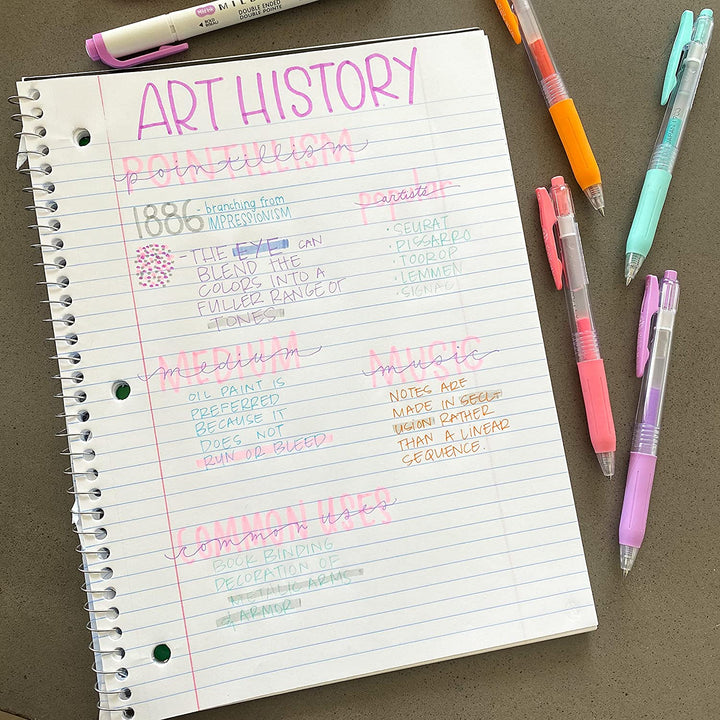 DOUBLE ENDED
DOUBLE POINTE
ART HISTORY
POINTILLISM
pointillism
1886 - branching from
IMPRESSIONISM
- THE EYE CAN
BLEND THE
COLORS INTO A
FULLER RANGE OF
TONES
popular
artists
· SEURAT
· PISSARRO
· TOOROP
· LEMMEN
· SIGNAC
MEDIUM
medium
OIL PAINT IS
PREFERRED
BECAUSE IT
DOES NOT
RUN OR BLEED
MUSIC
music
NOTES ARE
MADE IN SECL
USION RATHER
THAN A LINEAR
SEQUENCE.
COMMON USES
common uses
BOOK BINDING
DECORATION OF
METALIC ARMS
& ARMOR